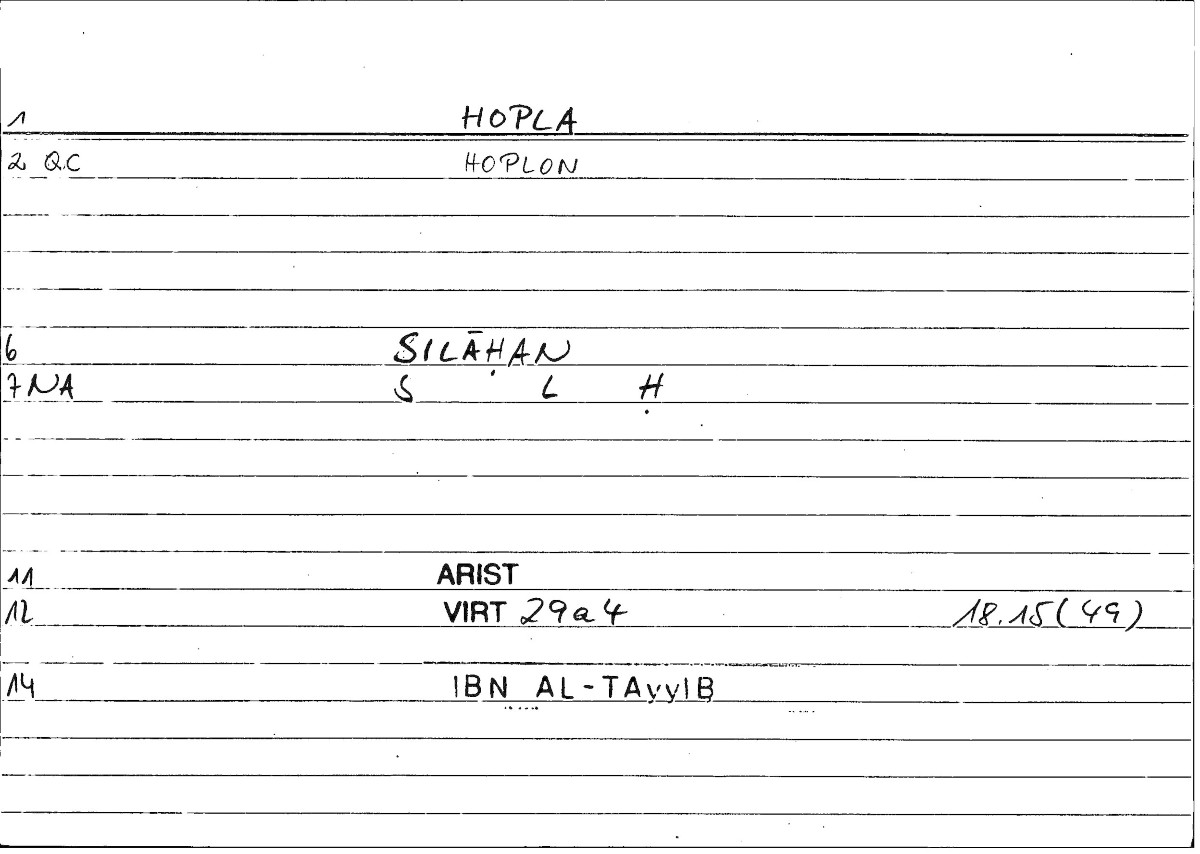 1 HOPLA
2 QC HOPLON
6 SILĀḤAN
7 NA S L Ḥ
11 ARIST
12 VIRT 29a4 18.15(49)
14 IBN AL-TAyyIB